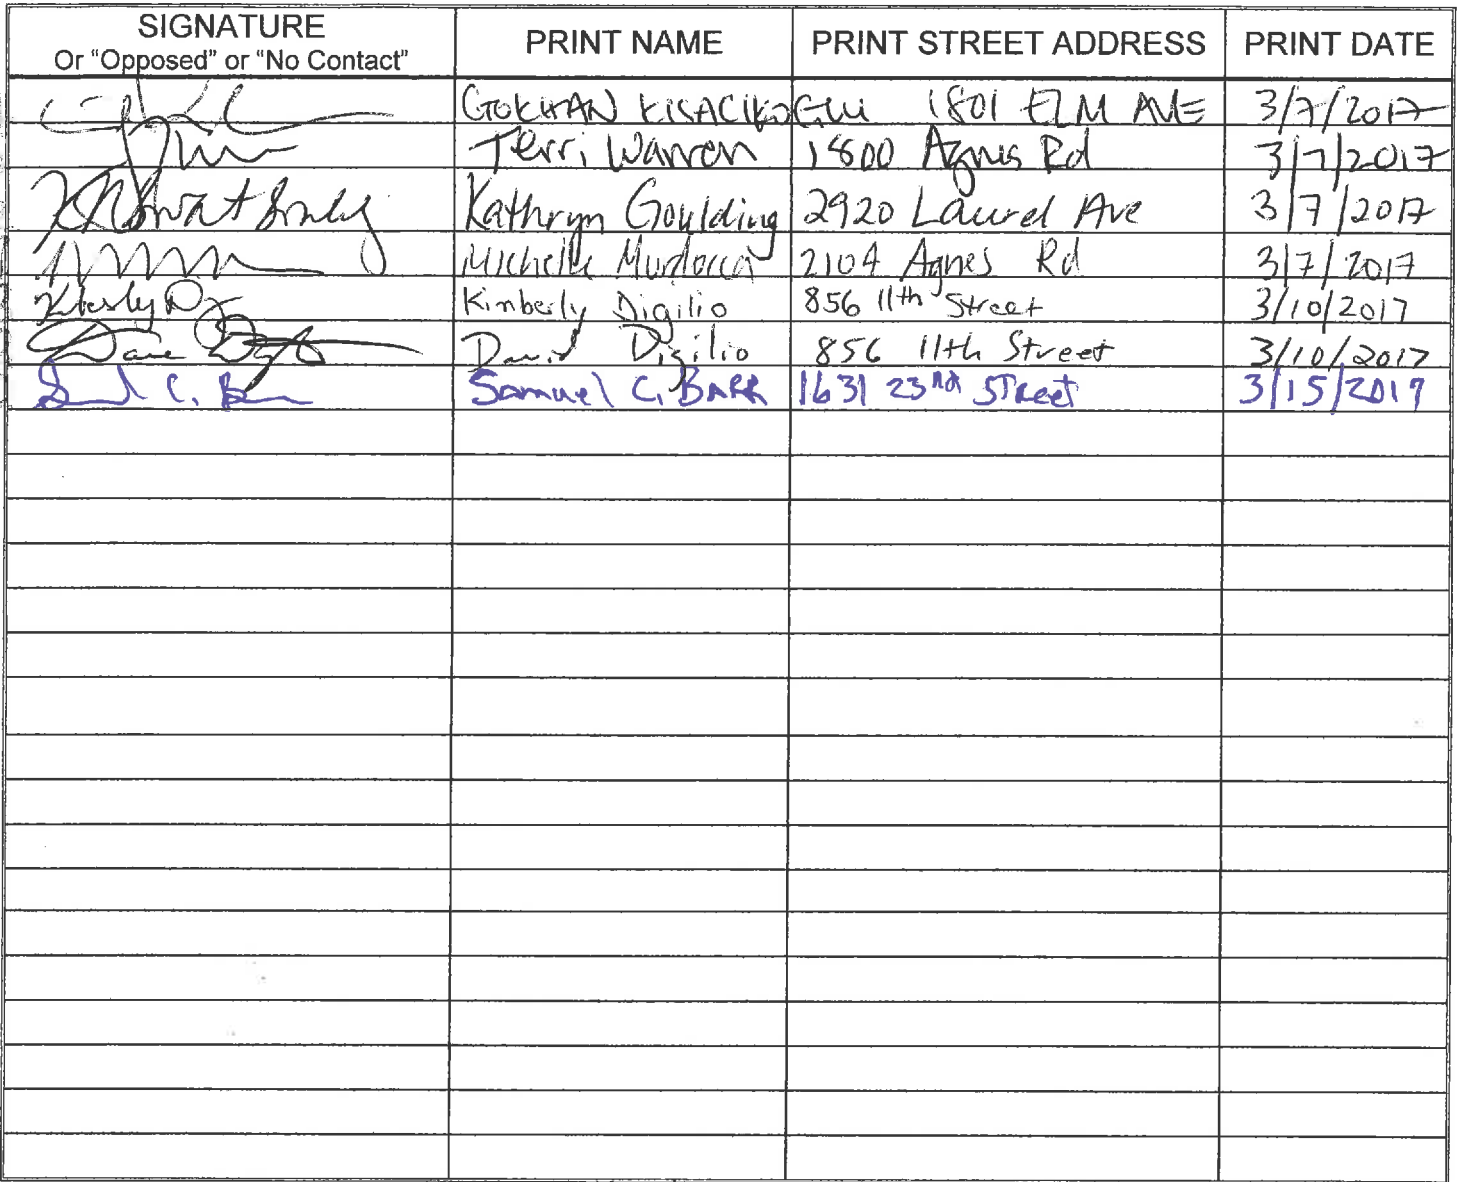 SIGNATURE PRINT NAME PRINT STREET ADDRESS PRINT DATE
Or "Opposed" or "No Contact"
GOKHAN KISACIKOGLU 1801 ELM AVE 3/7/2017
Terri Warren 1800 Agnes Rd 3/7/2017
Kathryn Goulding 2920 Laurel Ave 3/7/2017
Michelle Murdocca 2104 Agnes Rd 3/7/2017
Kimberly Digilio 856 11th Street 3/10/2017
Dave David Digilio 856 11th Street 3/10/2017
Samuel C. BARR 1631 23rd STReet 3/15/2017